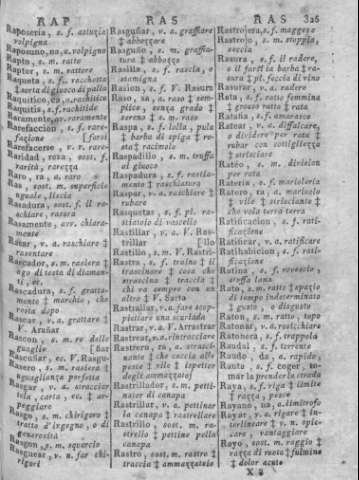 RAP
RAS
RAS 326
Raposería, s. f. astuzia
volpigna
Raposuno, na, a. volpigno
Rapto, s. m. ratto
Raptor, s. m. rattore
Raqueta, s. f. racchetta
‡ sorta di giuoco di palla
Raquitico, ca, a. rachitico
Raquitis, s. f. rachitide
Raramente, av. raramente
Rarefaccion, s. f. rare-
fazione
Rarefacerse, v. v. rare-
Raridad, roza, sost. f.
rarità, rarezza
Raro, ra, a. raro
Ras, sost. m. superficie
eguale, liscia
Rasadura, sost. f. il ra-
schiare, rasura
Rasamente, avv. chiara-
mente
Rasar, v. a. raschiare ‡
rasentare
Rascador, s. m. rasiera ‡
ago di testa di diaman-
ti, ec.
Rascadura, s. f. gratta-
mento ‡ marchio, che
resta dopo
Rascar, v. a. grattare ‡
V. Arañar
Rascon, s. m. re delle
quaglie
Rascuñar, ec. V. Rasgu-
Rasero, s. m. rasiera ‡
uguaglianza perfetta
Rasgar, v. a. stracciar
tela, carta, ec. ‡ ar-
peggiare
Rasgo, s. m. chirigoro ‡
tratto d'ingegno, o di
generosità
Rasgon, s. m. squarcio
Rasguear, v. n. far chi-
rigori
Rasguñar, v. a. graffiare
‡ abbozzare
Rasguño, s. m. graffia-
tura ‡ abbozzo
Rasilla, s. f. rascia, o
stamigna
Rasion, s. f. V. Rasura
Raso, sa, a. raso ‡ sem-
plice, senza grado ‡
sereno ‡ s. m. raso
Raspa, s. f. lolla, pula
‡ barba di spiga ‡ re-
sta ‡ racimolo
Raspadillo, s. m. truffa
al giuoco
Raspadura, s. f. rastia-
mento ‡ raschiatura
Raspar, v. a. raschiare ‡
rubare
Rasquetas, s. f. pl. ra-
stiatoio di vascello
Rastillar, v. a. V. Ras-
trillar [llo
Rastillo, s. m. V. Rastri-
Rastra, s. f. traino ‡ il
trascinare ‡ cosa che
strascina ‡ traccia ‡
chi va sempre con un
altro ‡ V. Sarta
Rastrallar, v. a. fare scop-
pettare una scuriada
Rastrar, v. a. V. Arrastrar
Rastrear, v. a. rintracciare
Rastrero, ra, a. strascin-
nante che caccia alle
peste ‡ vile ‡ ispettore
degli ammazzatoj
Rastrillador, s. m. petti-
nator di canapa
Rastrillar, v. a. pettinar
la canapa ‡ rastrellare
Rastrillo, sost. m. ra-
strello ‡ pettine pella
canapa
Rastro, sost. m. rastro ‡
traccia ‡ ammazzatoio
Rastrojera, s. f. maggese
Rastrojo, s. m. stoppia,
seccia
Rasura, s. f. il radere,
o il farsi la barba ‡ ra-
sura ‡ pl. feccia di vino
Rasurar, v. a. radere
Rata, s. f. ratto femmina
‡ grosso ratto ‡ rata
Ratafia, s. f. amarasco
Ratear, v. a. diffalcare,
o dividere per rata ‡
rubar con sottigliezza
‡ strisciare
Ratéo, s. m. division
per rata
Rateria, s. f. marioleria
Ratero, ra, a. mariolo
‡ vile ‡ strisciante ‡
che vola terra terra
Ratificacion, s. f. rati-
ficazione
Ratificar, v. a. ratificare
Ratihabicion, s. f. rati-
ficazione
Ratina, s. f. rovescio,
stoffa lana
Rato, s. m. ratto ‡ spazio
di tempo indeterminato
‡ gusto, o disgusto
Raton, s. m. ratto, topo
Ratonar, v. a. rosicchiare
Ratonera, s. f. trappola
Raudal, s. f. torrente
Raudo, da, a. rapido
Rauta, s. f. coger, to-
mar la prender la strada
Raya, s. f. riga ‡ limite
‡ razza, pesce
Rayano, na, a. limitrofo
Rayar, v. a. rigare ‡ in-
terlineare ‡ v. n. spic-
care, vantaggiare
Rayo, sost. m. raggio ‡
razzo di ruota ‡ fulmine
‡ dolor acuto
X 2